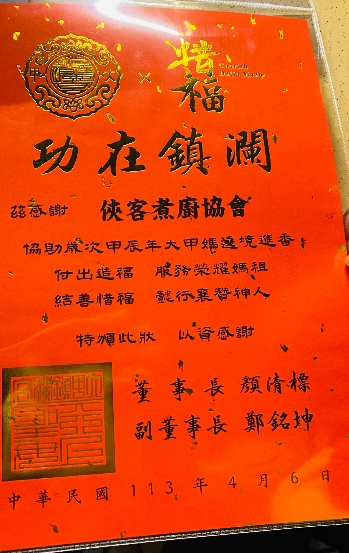 惜福
功在鎮瀾
茲感謝 俠客煮廚協會
協助歲次甲辰年大甲媽遶境進香
付出造福 服務榮耀媽祖
結善惜福 懿行襄贊神人
特頒此狀 以資感謝
董事長 顏清標
副董事長 鄭銘坤
中華民國 113 年 4 月 6 日